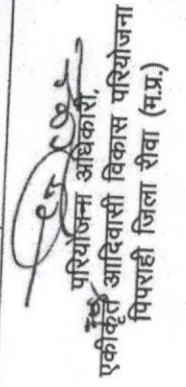 परियोजना अधिकारी,
एकीकृत आदिवासी विकास परियोजना
पिपराही जिला रीवा (म.प्र.)